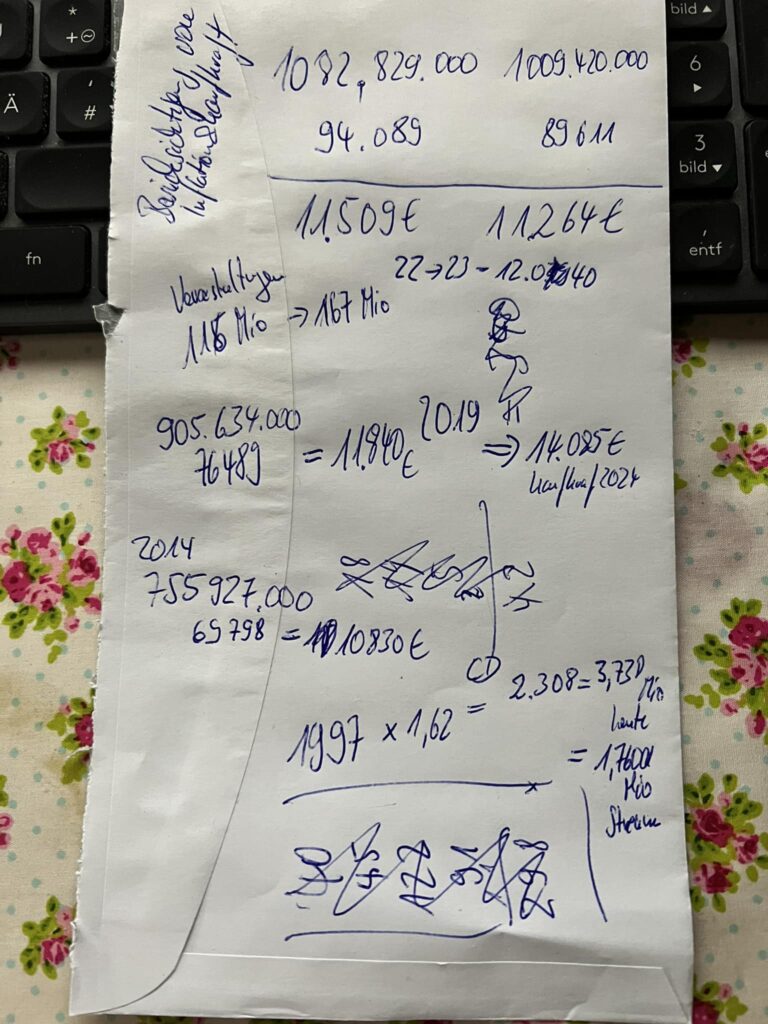 Berücksichtigung von
Inflation & Kaufkraft
1082,829.000 1009.420.000
94.089 89611
11.509€ 11.264€
22→23 - 12.0 40
Veranstaltungen
115 Mio → 167 Mio
905.634.000
76489 = 11.840€ 2019 ⇒ 14.085€
Kaufkraft 2024
2014
755927.000
69798 = 10830€
CD
1997 x 1,62 = 2.308 = 3,730 Mio
heute
= 1,7600 Mio
Streams
*
+@
Ä
'
#
fn
bild ▲
6
▶
3
bild ▼
,
entf